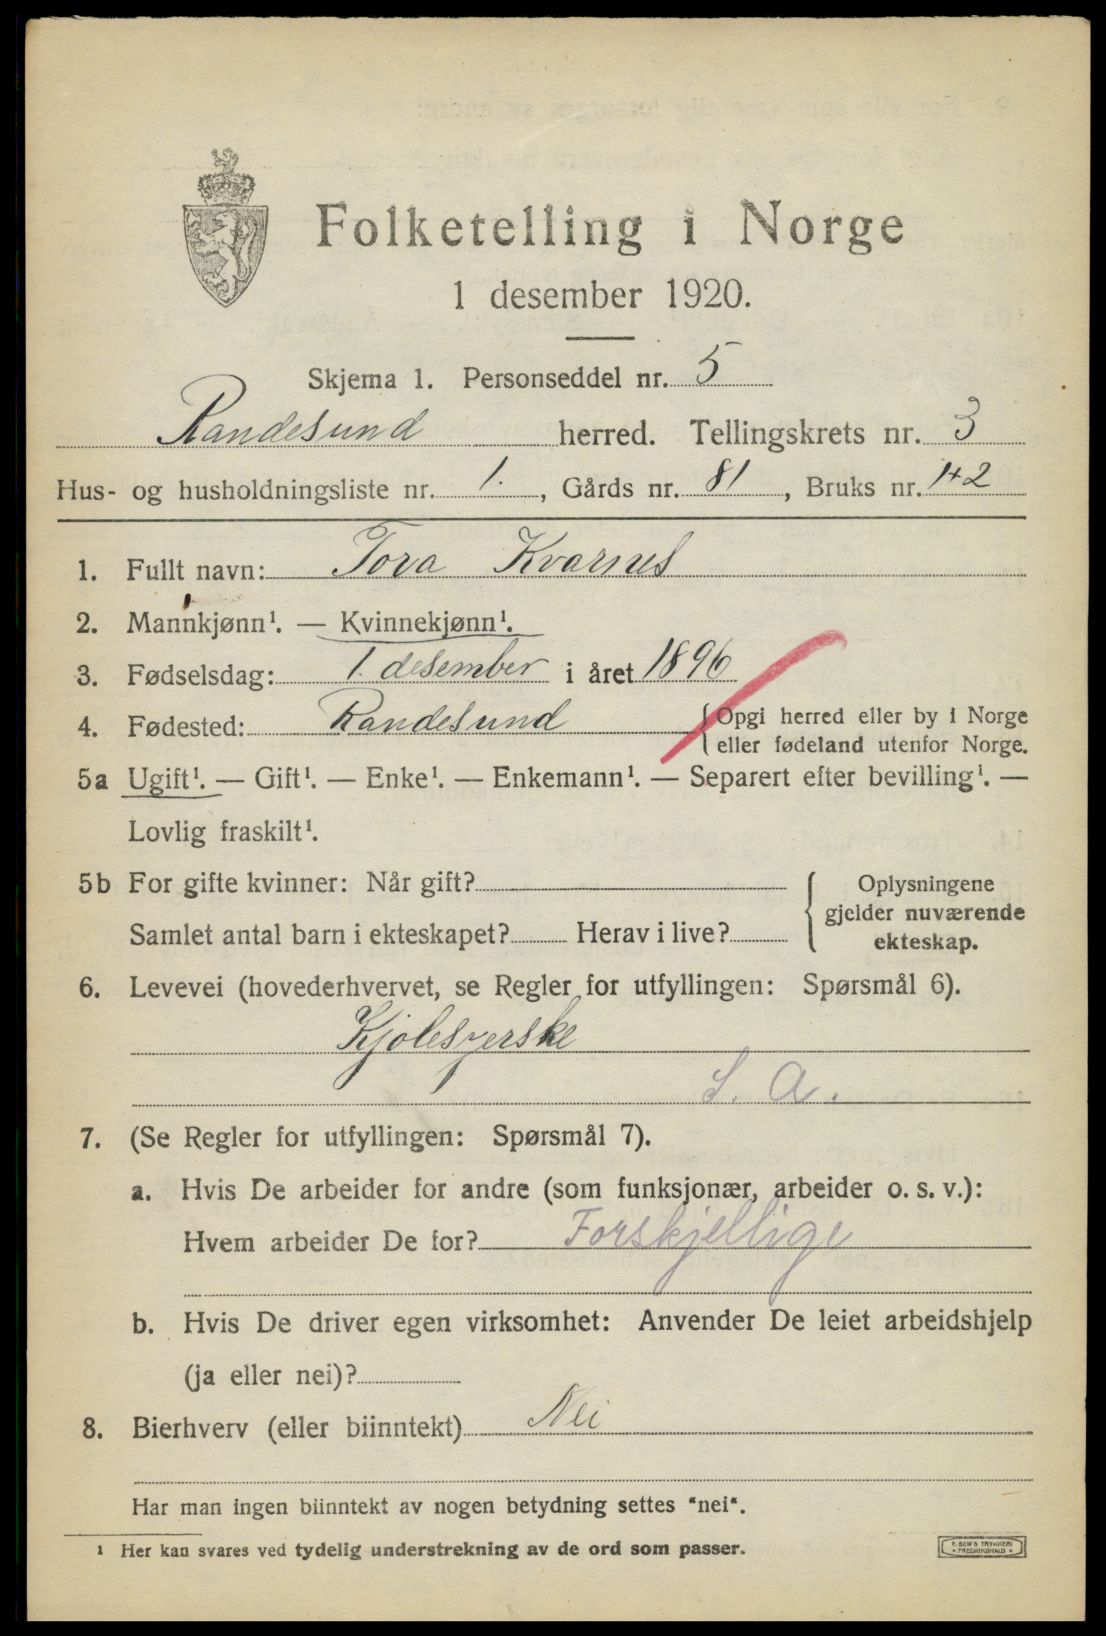 Folketelling i Norge
1 desember 1920.
Skjema 1. Personseddel nr. 5
Randesund herred. Tellingskrets nr. 3
Hus- og husholdningsliste nr. 1., Gårds nr. 81, Bruks nr. 1+2
1. Fullt navn: Tora Kvarnes
2. Mannkjønn¹. — Kvinnekjønn¹.
3. Fødselsdag: 1. desember i året 1896
4. Fødested: Randesund {Opgi herred eller by i Norge
eller fødeland utenfor Norge.
5a Ugift¹. — Gift¹. — Enke¹. — Enkemann¹. — Separert efter bevilling¹. —
Lovlig fraskilt¹.
5b For gifte kvinner: Når gift?
Samlet antal barn i ekteskapet? Herav i live?
{ Oplysningene
gjelder nuværende
ekteskap.
6. Levevei (hovederhvervet, se Regler for utfyllingen: Spørsmål 6).
Kjolesyerske
S. A.
7. (Se Regler for utfyllingen: Spørsmål 7).
a. Hvis De arbeider for andre (som funksjonær, arbeider o. s. v.):
Hvem arbeider De for? Forskjellige
b. Hvis De driver egen virksomhet: Anvender De leiet arbeidshjelp
(ja eller nei)?
8. Bierhverv (eller biinntekt) Nei
Har man ingen biinntekt av nogen betydning settes "nei".
¹ Her kan svares ved tydelig understrekning av de ord som passer.
TRYKKERI
FREDRIKSHALD